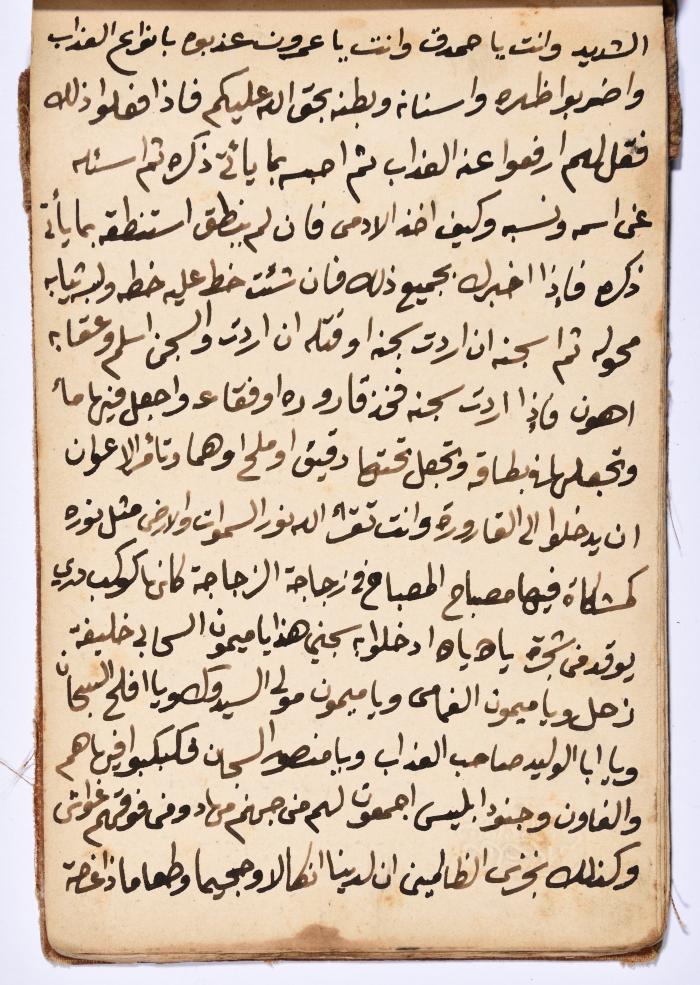 الشديد وانت يا حمدق وانت يا عمرون عذبوه بانواع العذاب
واضربوا ظهره واسنانه وبطنه بحق الله عليكم فاذا فعلوا ذلك
فقل لهم ارفعوا عنه العذاب ثم احبسه بما يأتى ذكره ثم اسئله
عن اسمه ونسبه وكيف اخذ الادمى فان لم ينطق استنطقه بما يأتى
ذكره فإذا اخبرك بجميع ذلك فان شئت خط عليه خطه ولبه ثيابه
محوله ثم اسجنه ان اردت سجنه او قتله ان اردت والسجن اسلم وعقابه
اهون فإذا اردت سجنه فخذ قاروره او فقاعه واجعل فيها مأ
وتجعلها فى بطاقه وتجعل تحتها دقيق او ملح او هما وتأمر الاعوان
ان يدخلوا الى القارورة وانت تقرأ الله نور السموات والارض مثل نوره
كمشكاة فيها مصباح المصباح فى زجاجة الزجاجة كانها كوكب دري
يوقد من شجرة ياه ياه ادخلوا به سجنى هذا يا ميمون السحابى خليفة
زحل ويا ميمون الغمامى ويا ميمون مولى السيد وك ويا افلح السجان
ويا ابا الوليد صاحب العذاب ويا منصور السجان فكبكبوا فيها هم
والغاون وجنود ابليس اجمعون لهم من جهنم مهاد ومن فوقهم غواش
وكذلك نجزى الظالمين ان لدينا انكالا وجحيما وطعاما ذا غصة